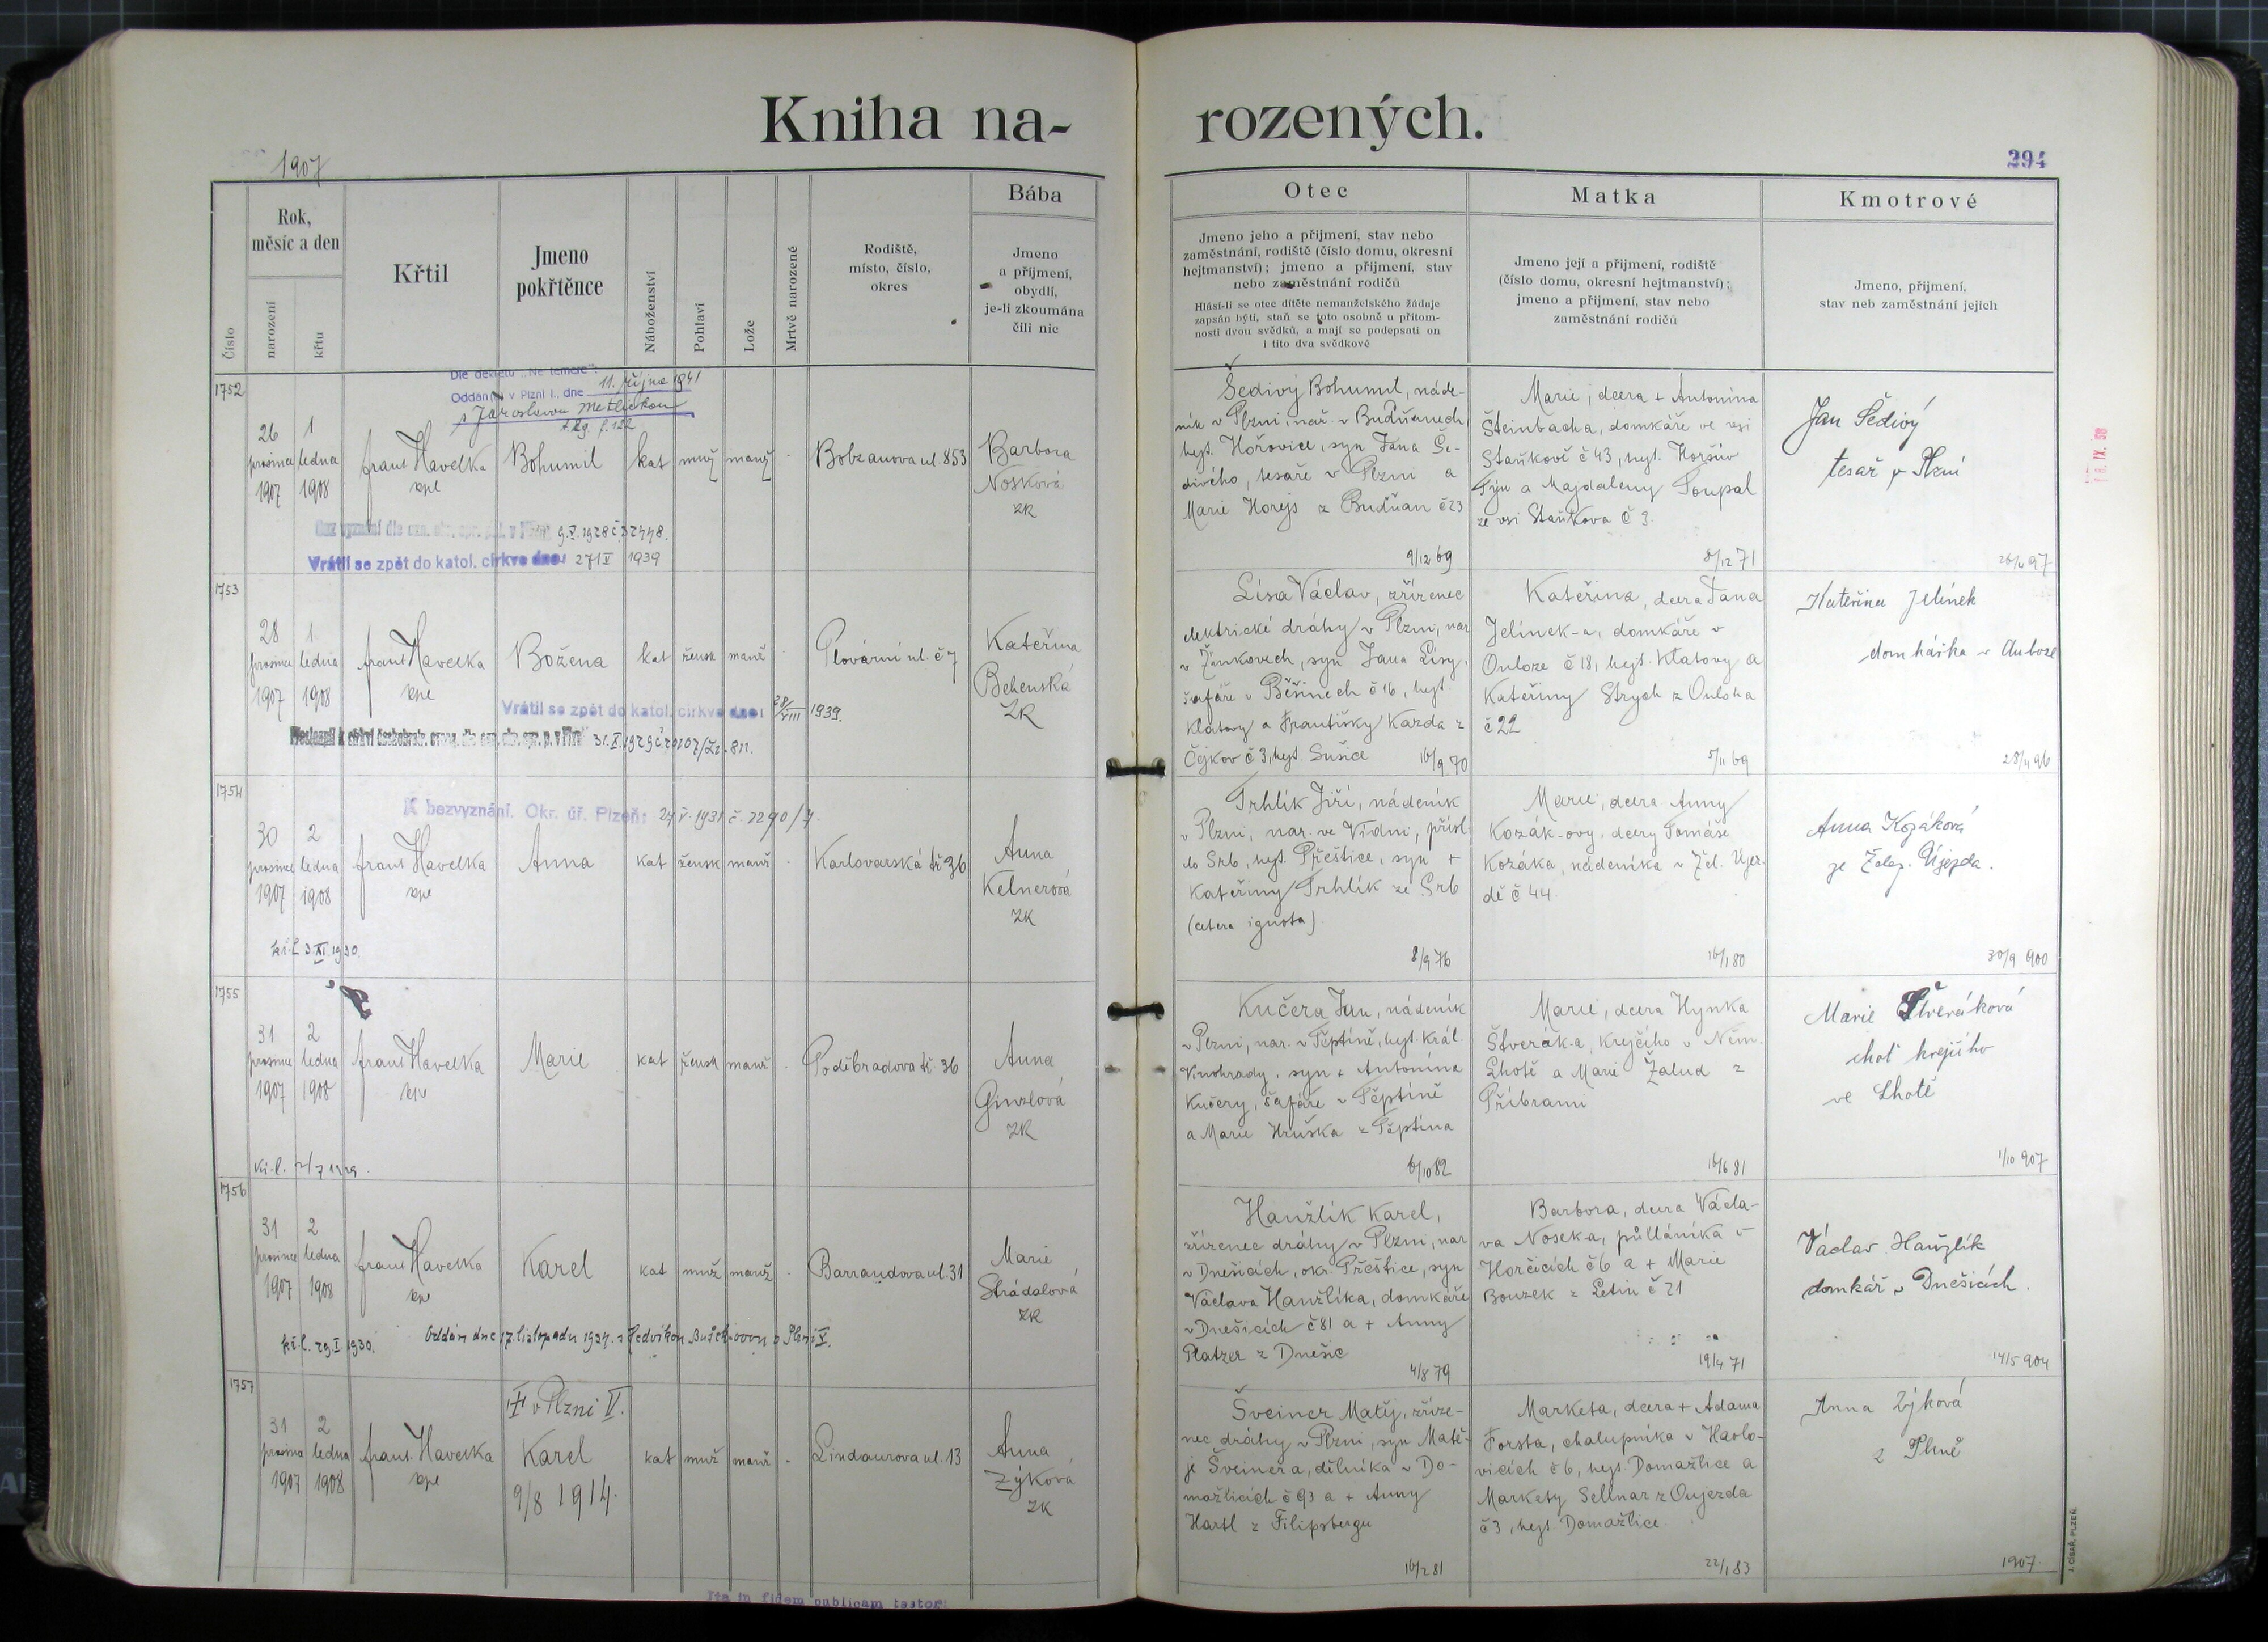 Kniha na-
rozených.
1907
294
Číslo
Rok,
měsíc a den
narození
křtu
Křtil
Jmeno
pokřtěnce
Náboženství
Pohlaví
Lože
Mrtvě narozené
Rodiště,
místo, číslo,
okres
Bába
Jmeno
a příjmení,
obydlí,
je-li zkoumána
čili nic
Otec
Jmeno jeho a příjmení, stav nebo
zaměstnání, rodiště (číslo domu, okresní
hejtmanství); jmeno a příjmení, stav
nebo zaměstnání rodičů
Hlásí-li se otec dítěte nemanželského žádaje
zapsán býti, staň se toto osobně u přítom-
nosti dvou svědků, a mají se podepsati on
i tito dva svědkové
Matka
Jmeno její a příjmení, rodiště
(číslo domu, okresní hejtmanství);
jmeno a příjmení, stav nebo
zaměstnání rodičů
Kmotrové
Jmeno, příjmení,
stav neb zaměstnání jejich
1752
Dle dekretu „Ne temere":
Oddán v Plzni I., dne 11. října 1941
s Jaroslavou Metličkou
26
prosince
1907
1
ledna
1908
frant Havelka
kpl
Bohumil
kat
muž
manž
Bobzanova ul. 853
Barbora
Nosková
ZK
9.V.1928 č.32448.
Vrátil se zpět do katol. církve dne: 1939
Šedivý Bohumil, náde-
ník v Plzni, nar. v Buďňanech
hejt. Hořovice, syn Jana Še-
divého, tesaře v Plzni a
Marie Horejs z Buďňan č 23
9/12 69
Marie, dcera + Antonína
Šteinbacha, domkáře ve vsi
Staňkově č 43, hejt. Horšův
Týn a Magdaleny Soupal
ze vsi Staňkova č 3.
8/12 71
Jan Šedivý
tesař v Plzni
26/4 97
1753
28
prosince
1907
1.
ledna
1908
frant Havelka
kpl
Božena
kat
žensk
manž
Plovární ul. č 7
Kateřina
Behenská
ZK
Vrátil se zpět do katol. církve dne: 28/VIII 1939.
Lísa Václav, zřízenec
elektrické dráhy v Plzni, nar
v Žinkovech, syn Jana Lísy,
šafáře v Běšinech č 16, hejt.
Klatovy a Františky Karda z
Čejkov č 3, hejt. Sušice
16/9 70
Kateřina, dcera Jana
Jelínek-a, domkáře v
Ouloze č 18, hejt. Klatovy a
Kateřiny Strych z Ouloha
č 22
5/11 69
Kateřina Jelínek
domkářka v
28/4 96
1754
K bezvyznání. Okr. úř. Plzeň: 27 V. 1931 č. 7290/7.
30
prosince
1907
2
ledna
1908
frant Havelka
kpl
Anna
kat
žensk
manž
Karlovarská tř 36
Anna
Kelnerová
ZK
kř. l. 3.XI 1930.
Trhlík Jiří, nádeník
v Plzni, nar. ve Vídni, přísl.
do Srb, hejt. Přeštice, syn +
Kateřiny Trhlík ze Srb
(cetera ignota).
8/9 76
Marie, dcera Anny
Kozák-ovy, dcery Tomáše
Kozáka, nádeníka v Žel. Újez-
dě č 44.
16/1 80
Anna Kozáková
ze Želez. Újezda.
30/9 900
1755
31
prosince
1907
2
ledna
1908
frant Havelka
kpl
Marie
kat
žensk
manž
Poděbradova tř. 36
Anna
Ginzlová
ZK
kř. l. 2/7 1929.
Kučera Jan, nádeník
v Plzni, nar. v Těptíně, hejt. Král.
Vinohrady, syn + Antonína
Kučery, šafáře v Těptíně
a Marie Hruška z Těptína
6/10 82
Marie, dcera Hynka
Štverák-a, krejčího v Něm.
Lhotě a Marie Žalud z
Příbrami
16/6 81
Marie Štveráková
choť krejčího
ve Lhotě
1/10 907
1756
31
prosince
1907
2
ledna
1908
frant Havelka
kpl
Karel
kat
muž
manž
Barrandova ul. 31
Marie
Strádalová
ZK
kř. l. 29.I 1930.
Oddán dne 17. listopadu 1934. s Hedvikou v Plzni V.
Hanžlík Karel,
zřízenec dráhy v Plzni, nar
v Dnešicích, okr. Přeštice, syn
Václava Hanžlíka, domkáře
v Dnešicích č 81 a + Anny
Platzer z Dnešic
4/8 79
Barbora, dcera Václa-
va Noseka, půlláníka v
Horčicích č 6 a + Marie
Bouzek z Letin č 21
19/4 71
Václav Hanžlík
domkář v Dnešicích.
14/5 904
1757
† v Plzni V.
31
prosince
1907
2
ledna
1908
frant. Havelka
kpl
Karel
9/8 1914.
kat
muž
manž
Lindaurova ul. 13
Anna
Zýková
ZK
Šveiner Matěj, zříze-
nec dráhy v Plzni, syn Matě-
je Šveinera, dělníka v Do-
mažlicích č 93 a + Anny
Hartl z Filipsbergu
16/2 81
Marketa, dcera + Adama
Forsta, chalupníka v Havlo-
vicích č 6, hejt. Domažlice a
Markety Sellnar z Oujezda
č 3, hejt. Domažlice
22/1 83
Anna Zýková
z Plzně
1907
Ita in fidem publicam testor:
J. CÍSAŘ, PLZEŇ.